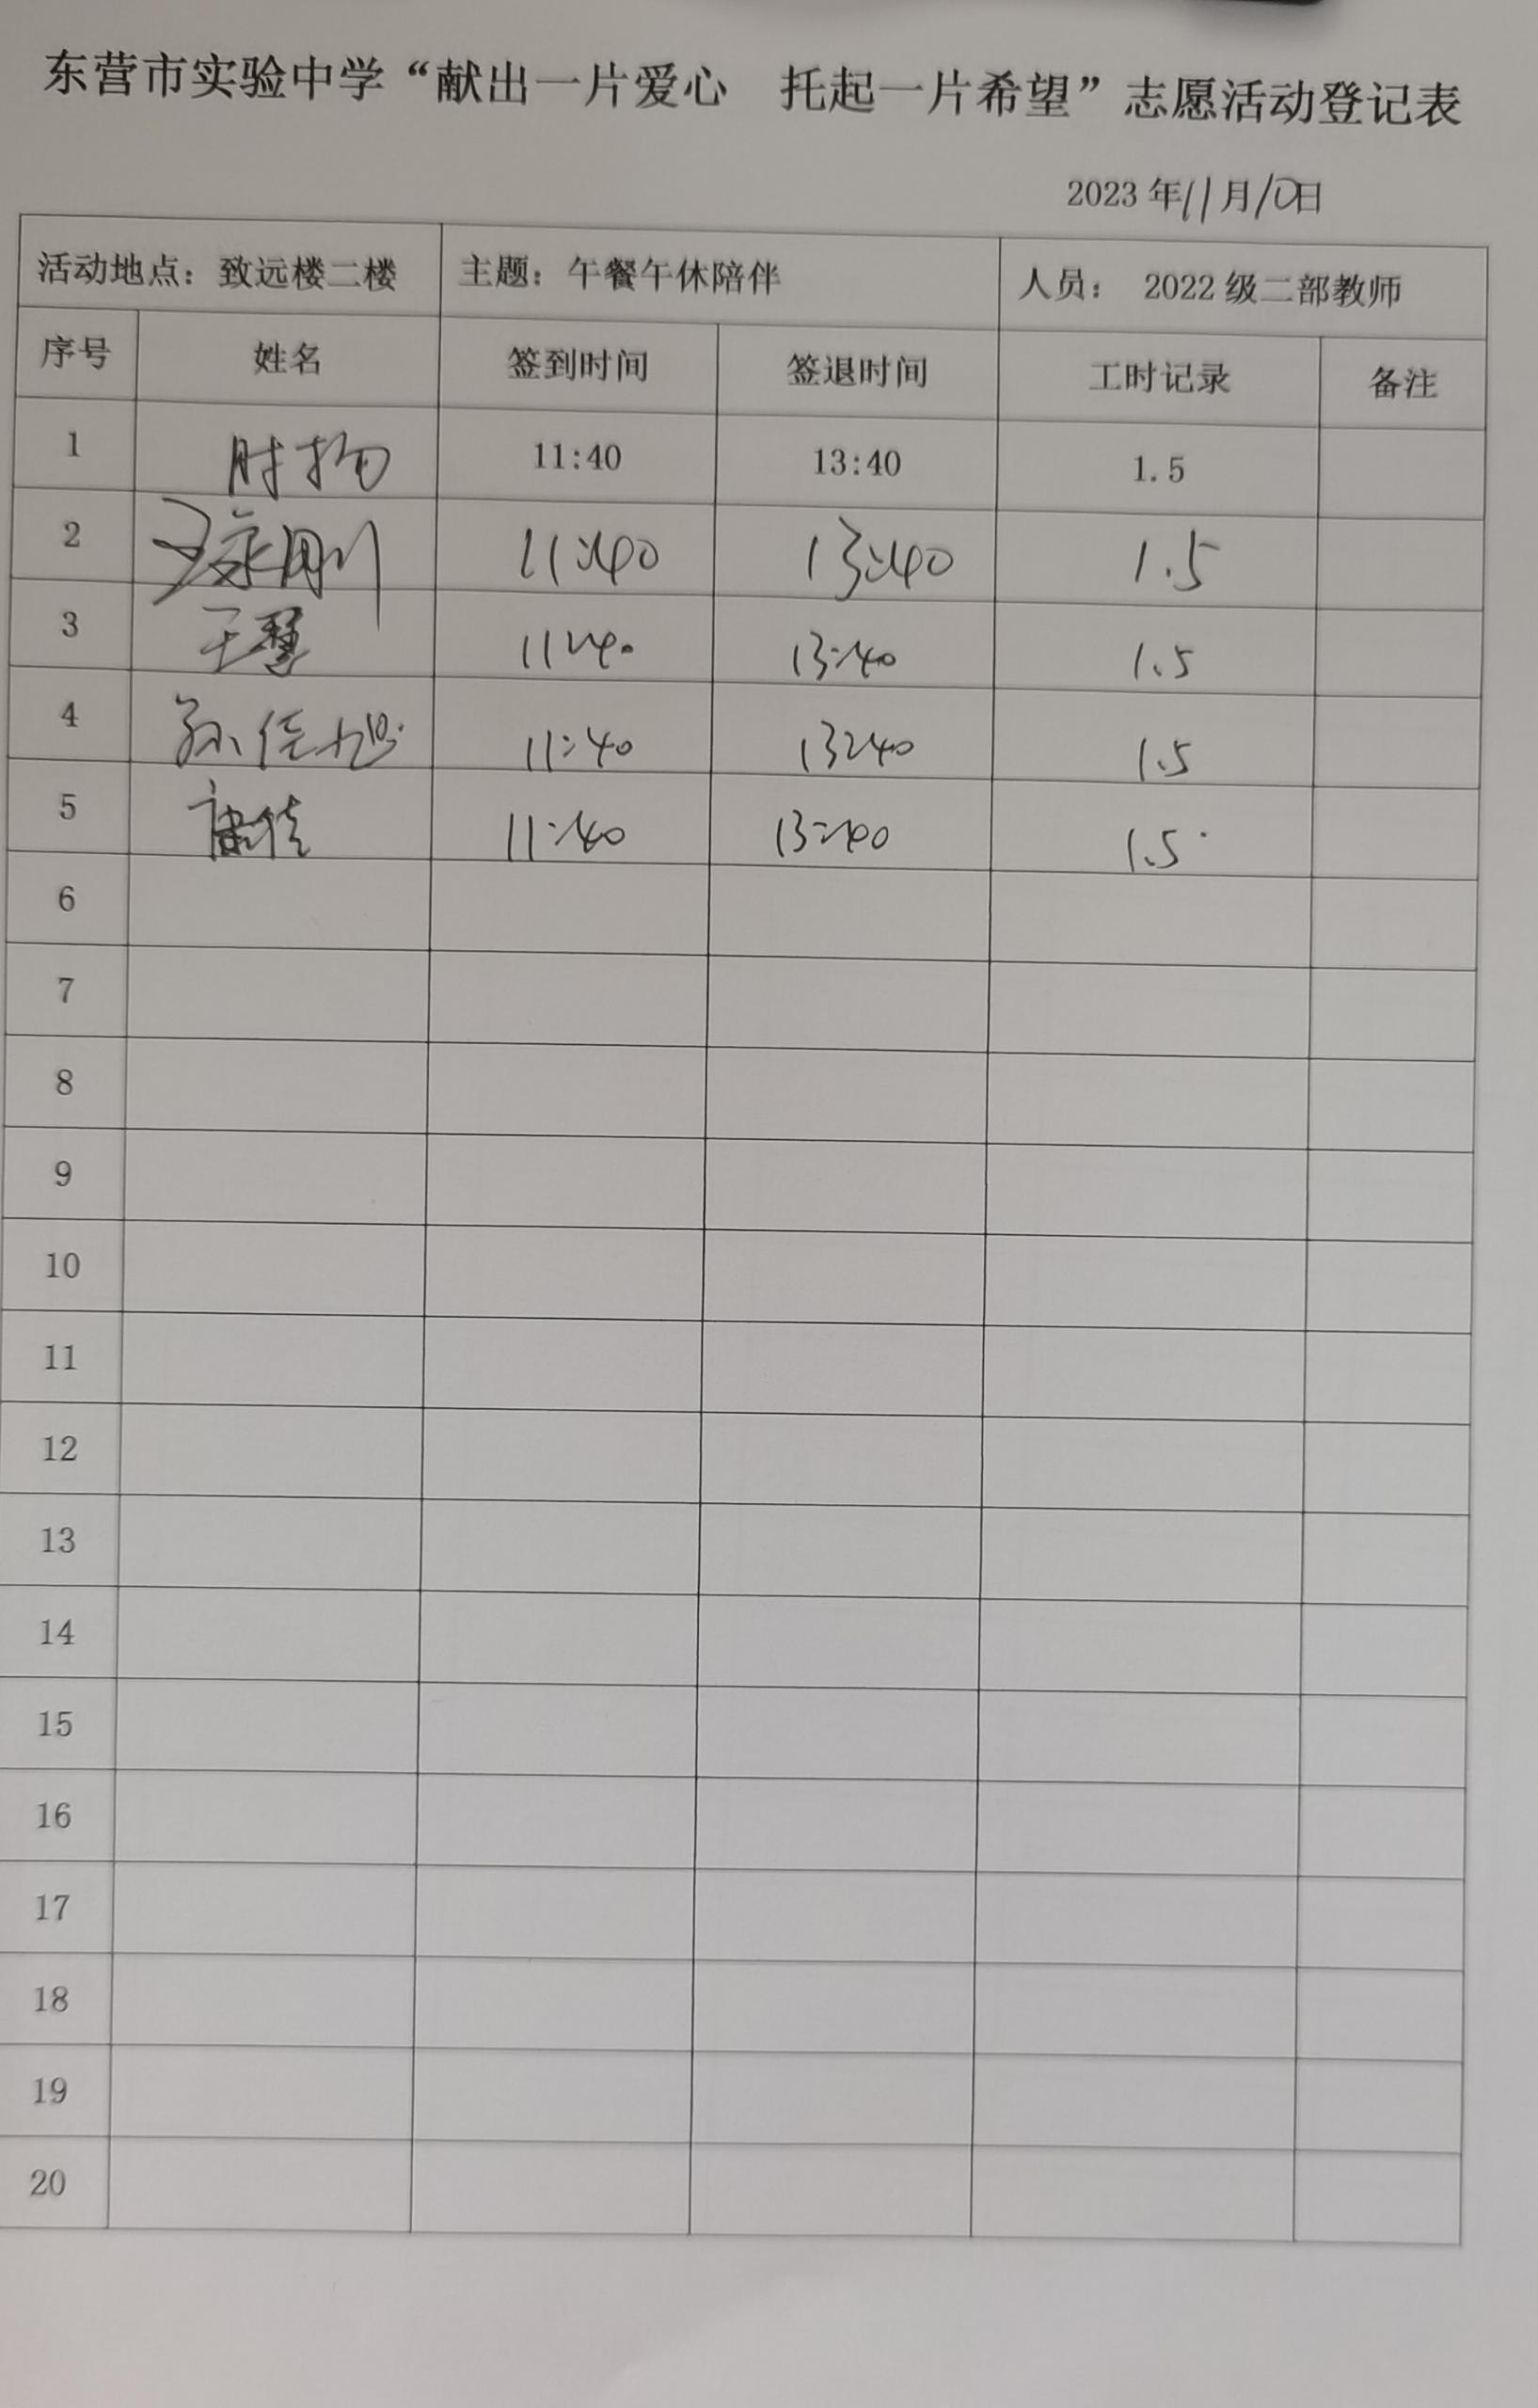 东营市实验中学“献出一片爱心 托起一片希望”志愿活动登记表
2023 年11月10日
活动地点：致远楼二楼 主题：午餐午休陪伴 人员： 2022 级二部教师
序号 姓名 签到时间 签退时间 工时记录 备注
1 11:40 13:40 1.5
2 11:40 13:40 1.5
3 王慧 11:40 13:40 1.5
4 孙佳旭 11:40 13:40 1.5
5 11:40 13:40 1.5
6
7
8
9
10
11
12
13
14
15
16
17
18
19
20